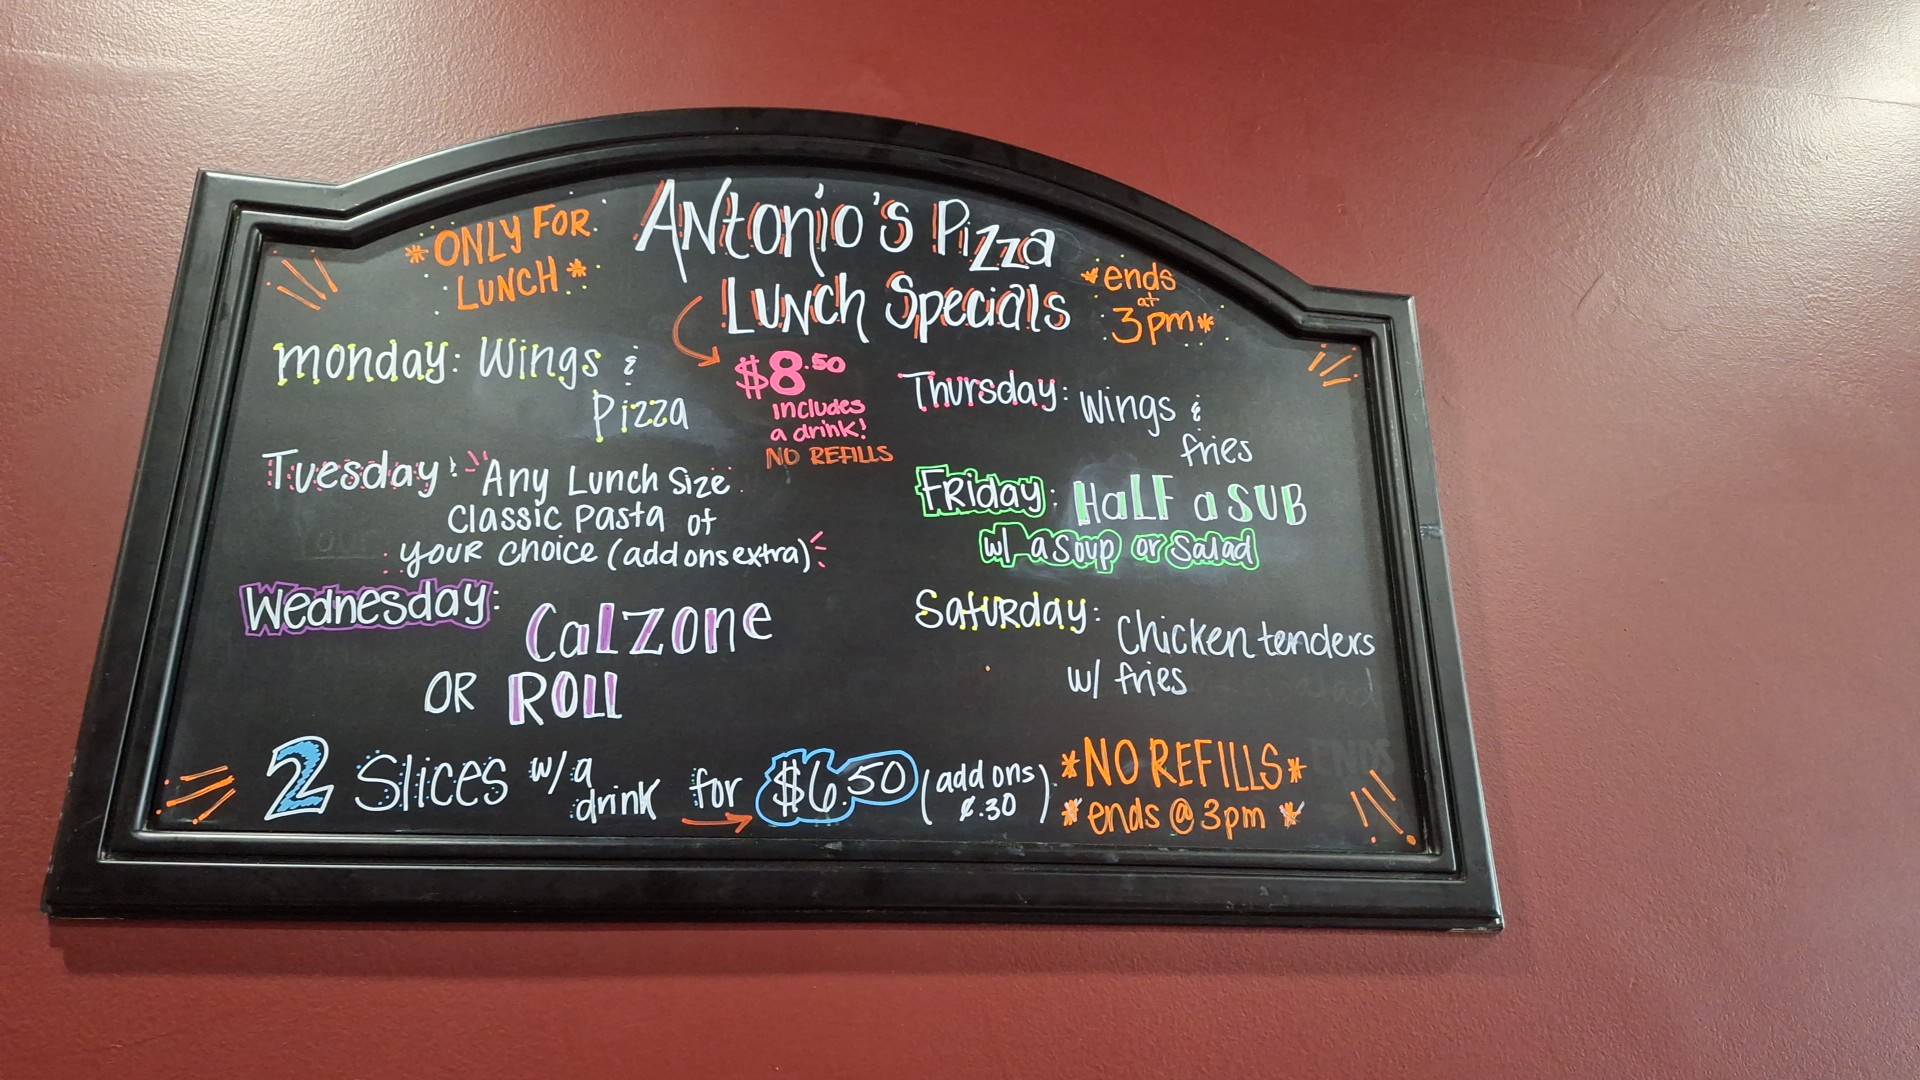 *ONLY FOR
LUNCH*
Antonio's Pizza
Lunch Specials
*ends
at
3pm*
$8.50
includes
a drink!
NO REFILLS
monday: Wings &
Pizza
Tuesday: Any Lunch Size
Classic Pasta of
YOUR choice (add ons extra)
Wednesday: Calzone
OR ROLL
Thursday: Wings &
fries
Friday: HaLF a SUB
w/ a Soup or Salad
Saturday: Chicken tenders
w/ fries
2 Slices w/ a
drink for $6.50 (add ons
¢.30)
*NO REFILLS*
*ends @ 3pm*